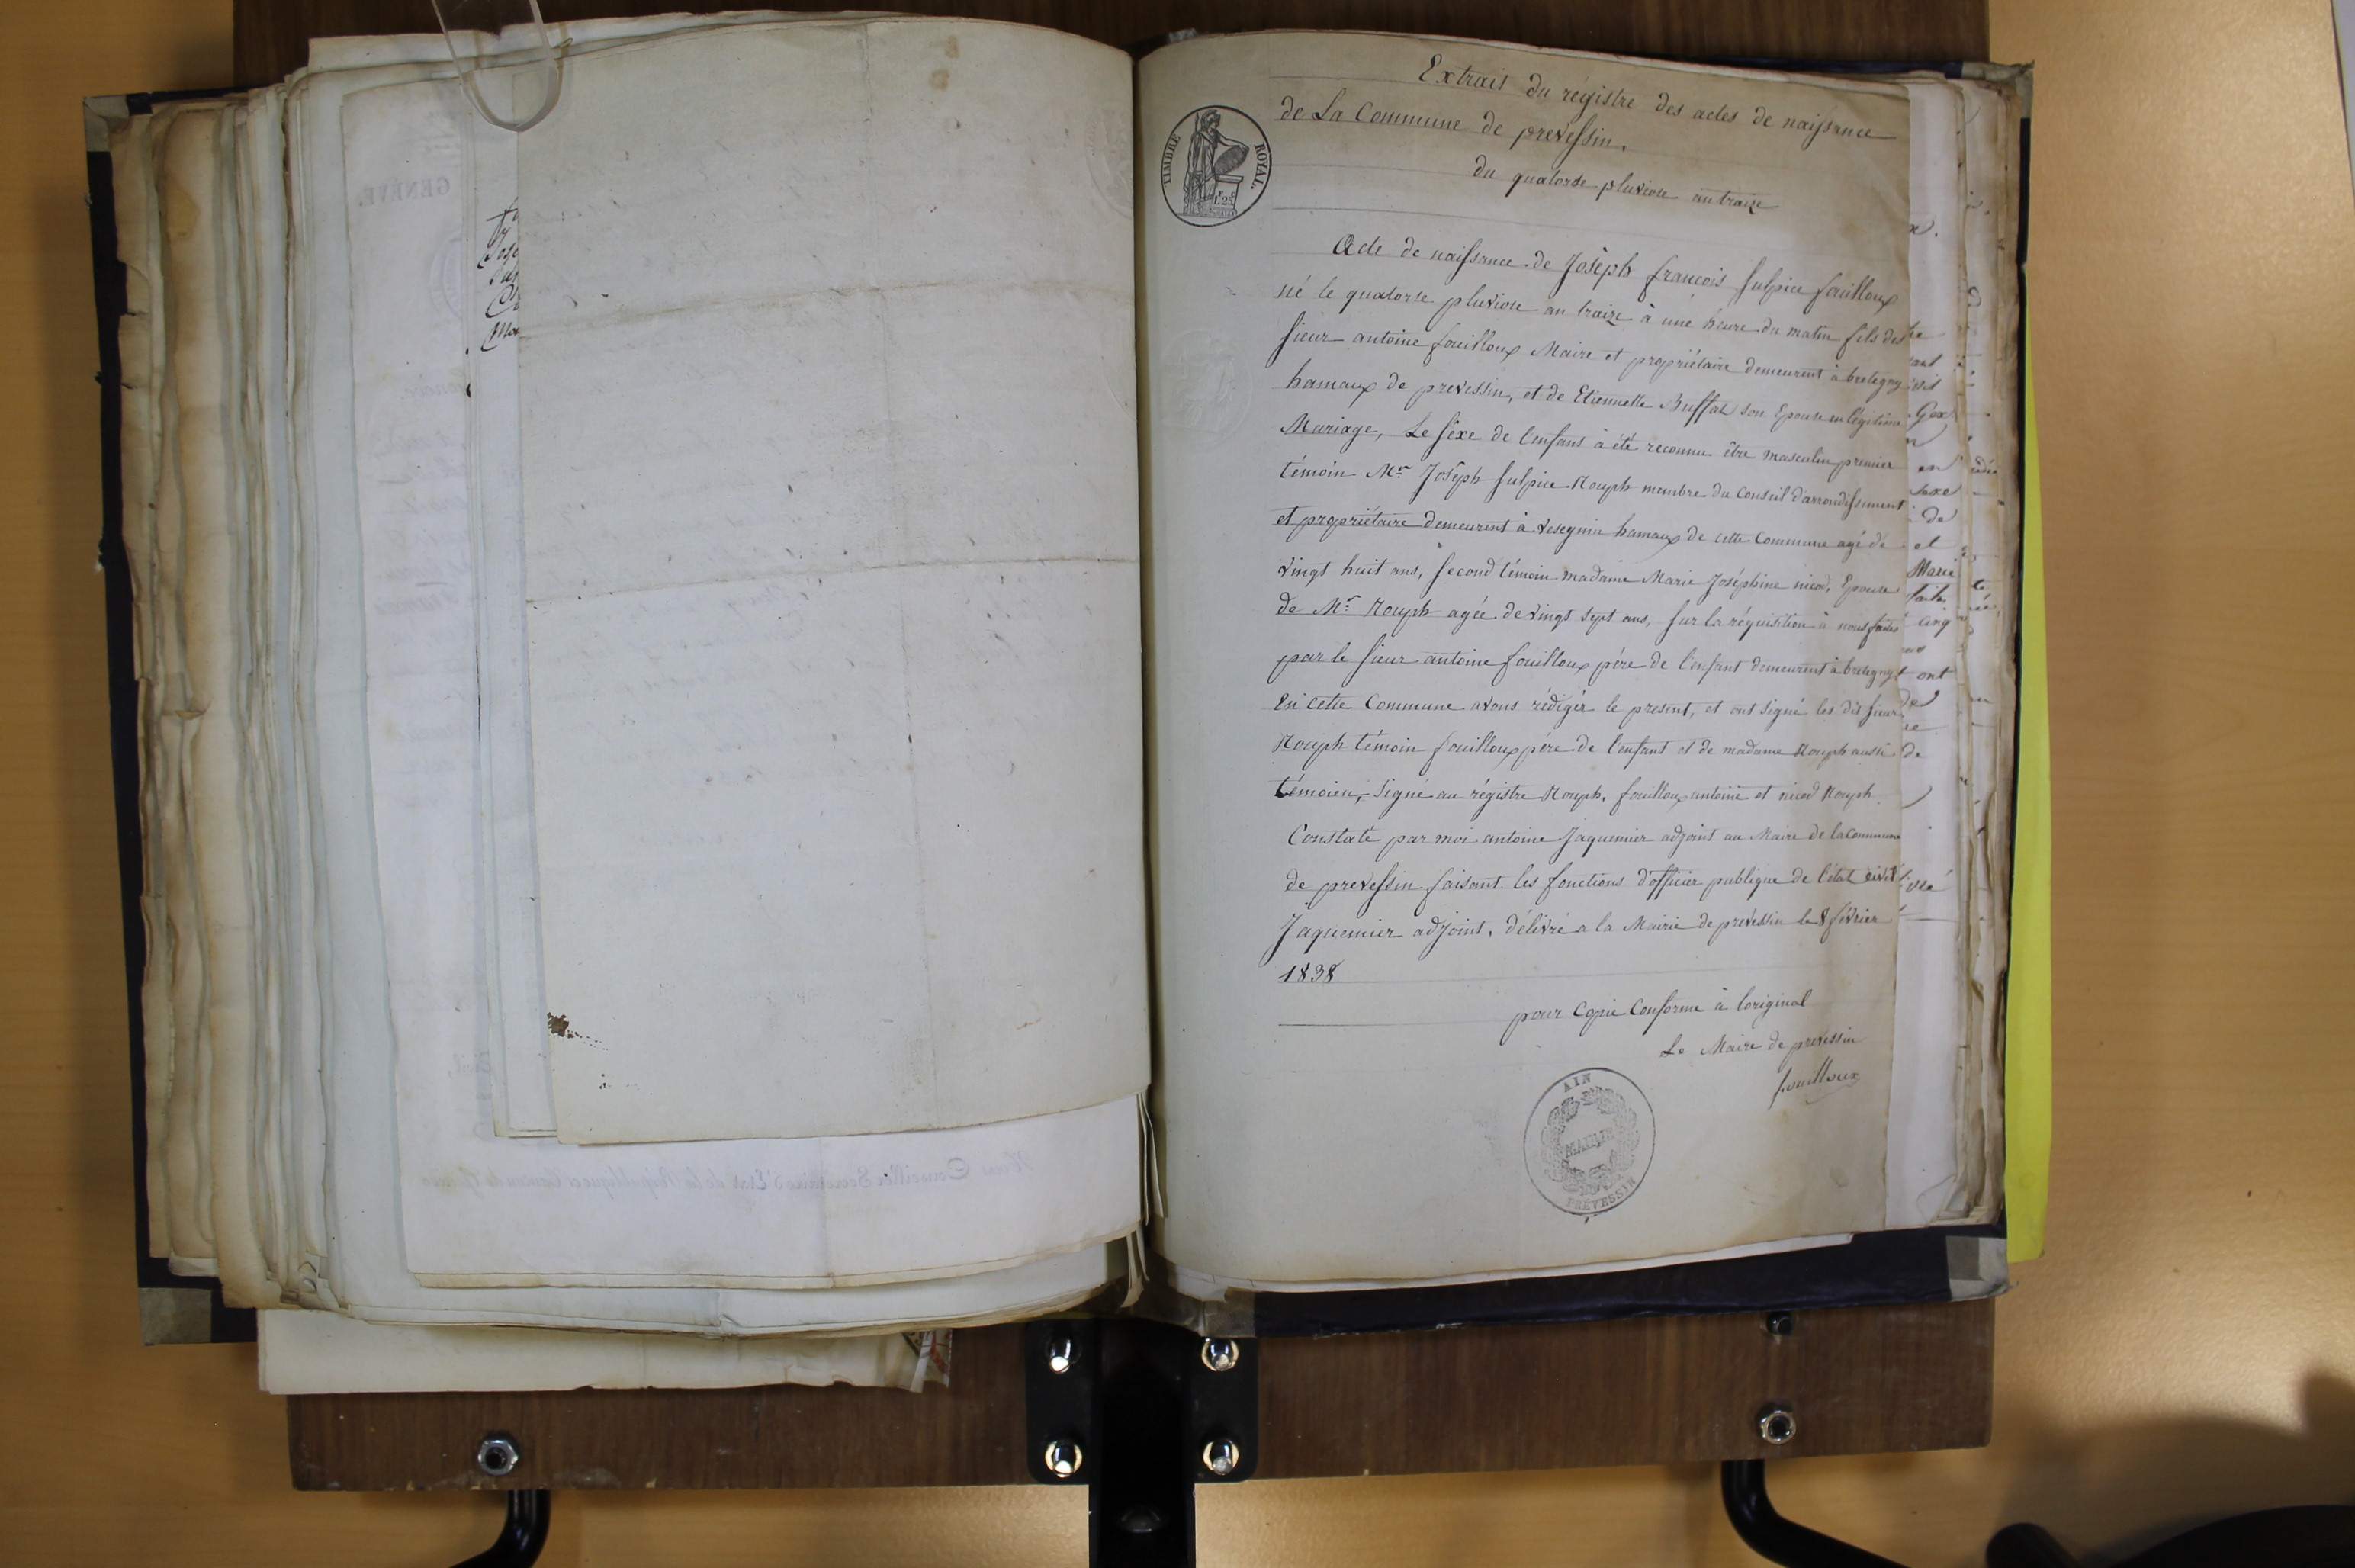 Extrait du régistre des actes de naissance
de La Commune de prevessin.
du quatorse pluviose an traize
TIMBRE ROYAL.
Acte de naissance de Joseph francois Sulpice fouilloux
né le quatorse pluviose an traize à une heure du matin fils de
sieur antoine fouilloux Maire et propriétaire demeurent à bretegny
hamaux de prevessin, et de Etiennette Buffat son Epouse en légitime
Mariage, Le séxe de l'enfant à été reconnu être masculin premier
témoin Mr Joseph Sulpice Rouph membre du Conseil d'arrondissement
et propriétaire demeurent à vesegnin hamaux de cette Commune agé de
vingt huit ans, second témoin madame Marie Joséphine nicod, Epouse
de Mr Rouph agée de vingt sept ans, sur la réquisition à nous faite
par le sieur antoine fouilloux pére de l'enfant demeurent à bretegny
En cette Commune avons rédigér le present, et ont signé les dit sieur
Rouph témoin fouilloux pére de l'enfant et de madame Rouph aussi
témoien, signé au régistre Rouph, fouilloux antoine et nicod Rouph
Constaté par moi antoine Jaquemier adjoint au Maire de la Commune
de prevessin faisant les fonctions d'officier publique de l'état civil
Jaquemier adjoint. délivré a la Mairie de prevessin le 8 février
1838
pour Copie Conforme à loriginal
Le Maire de prevessin
fouilloux
AIN
MAIRIE
PREVESSIN
GENÈVE.